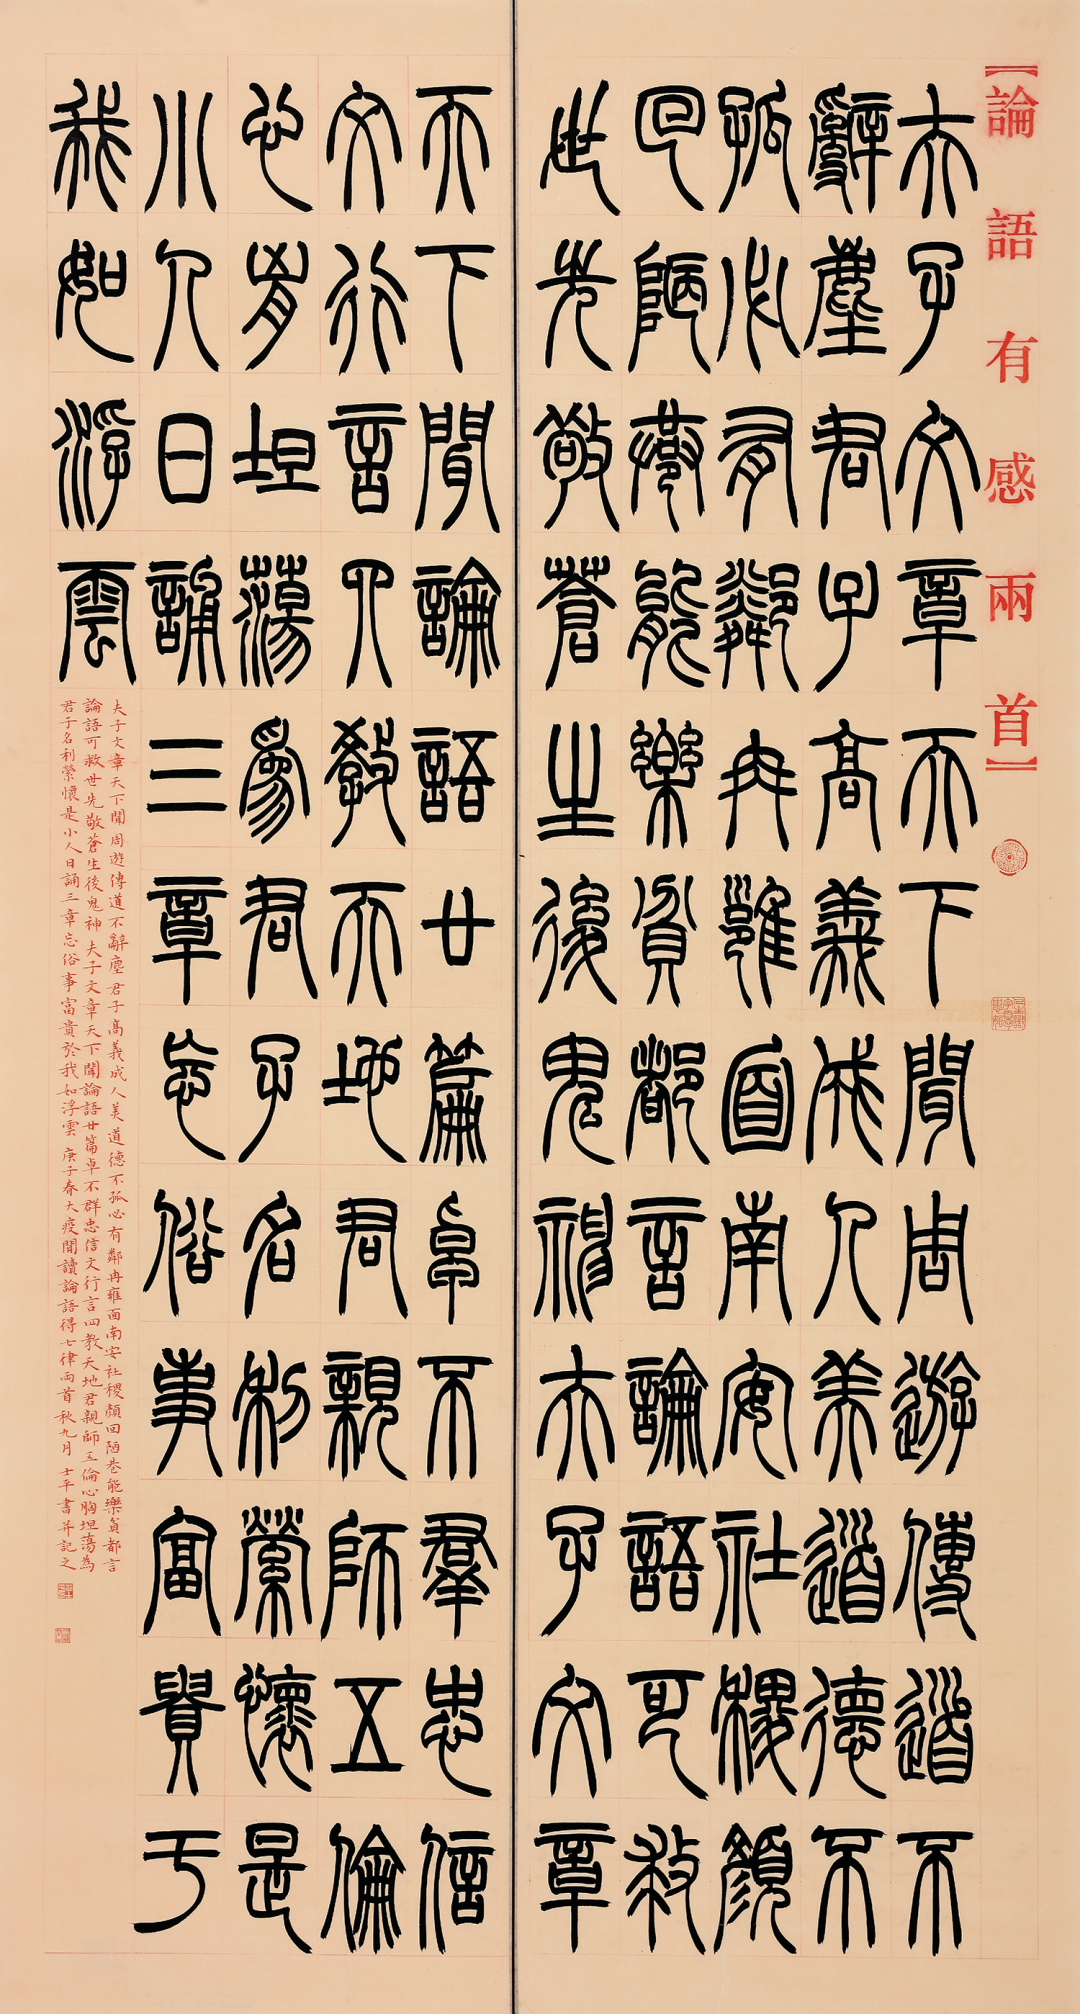 【論語有感兩首】
夫子文章天下聞周遊傳道不
辭塵君子高義成人美道德不
孤必有鄰冉雍面南安社稷顏
回陋巷能樂貧都言論語可救
世先敬蒼生後鬼神夫子文章
天下聞論語廿篇卓不群忠信
文行言四教天地君親師五倫
心胸坦蕩為君子名利縈懷是
小人日誦三章忘俗事富貴于
我如浮雲
夫子文章天下聞周遊傳道不辭塵君子高義成人美道德不孤必有鄰冉雍面南安社稷顏回陋巷能樂貧都言
論語可救世先敬蒼生後鬼神夫子文章天下聞論語廿篇卓不群忠信文行言四教天地君親師五倫心胸坦蕩為
君子名利縈懷是小人日誦三章忘俗事富貴於我如浮雲庚子春大疫閒讀論語得七律兩首秋九月士平書并記之